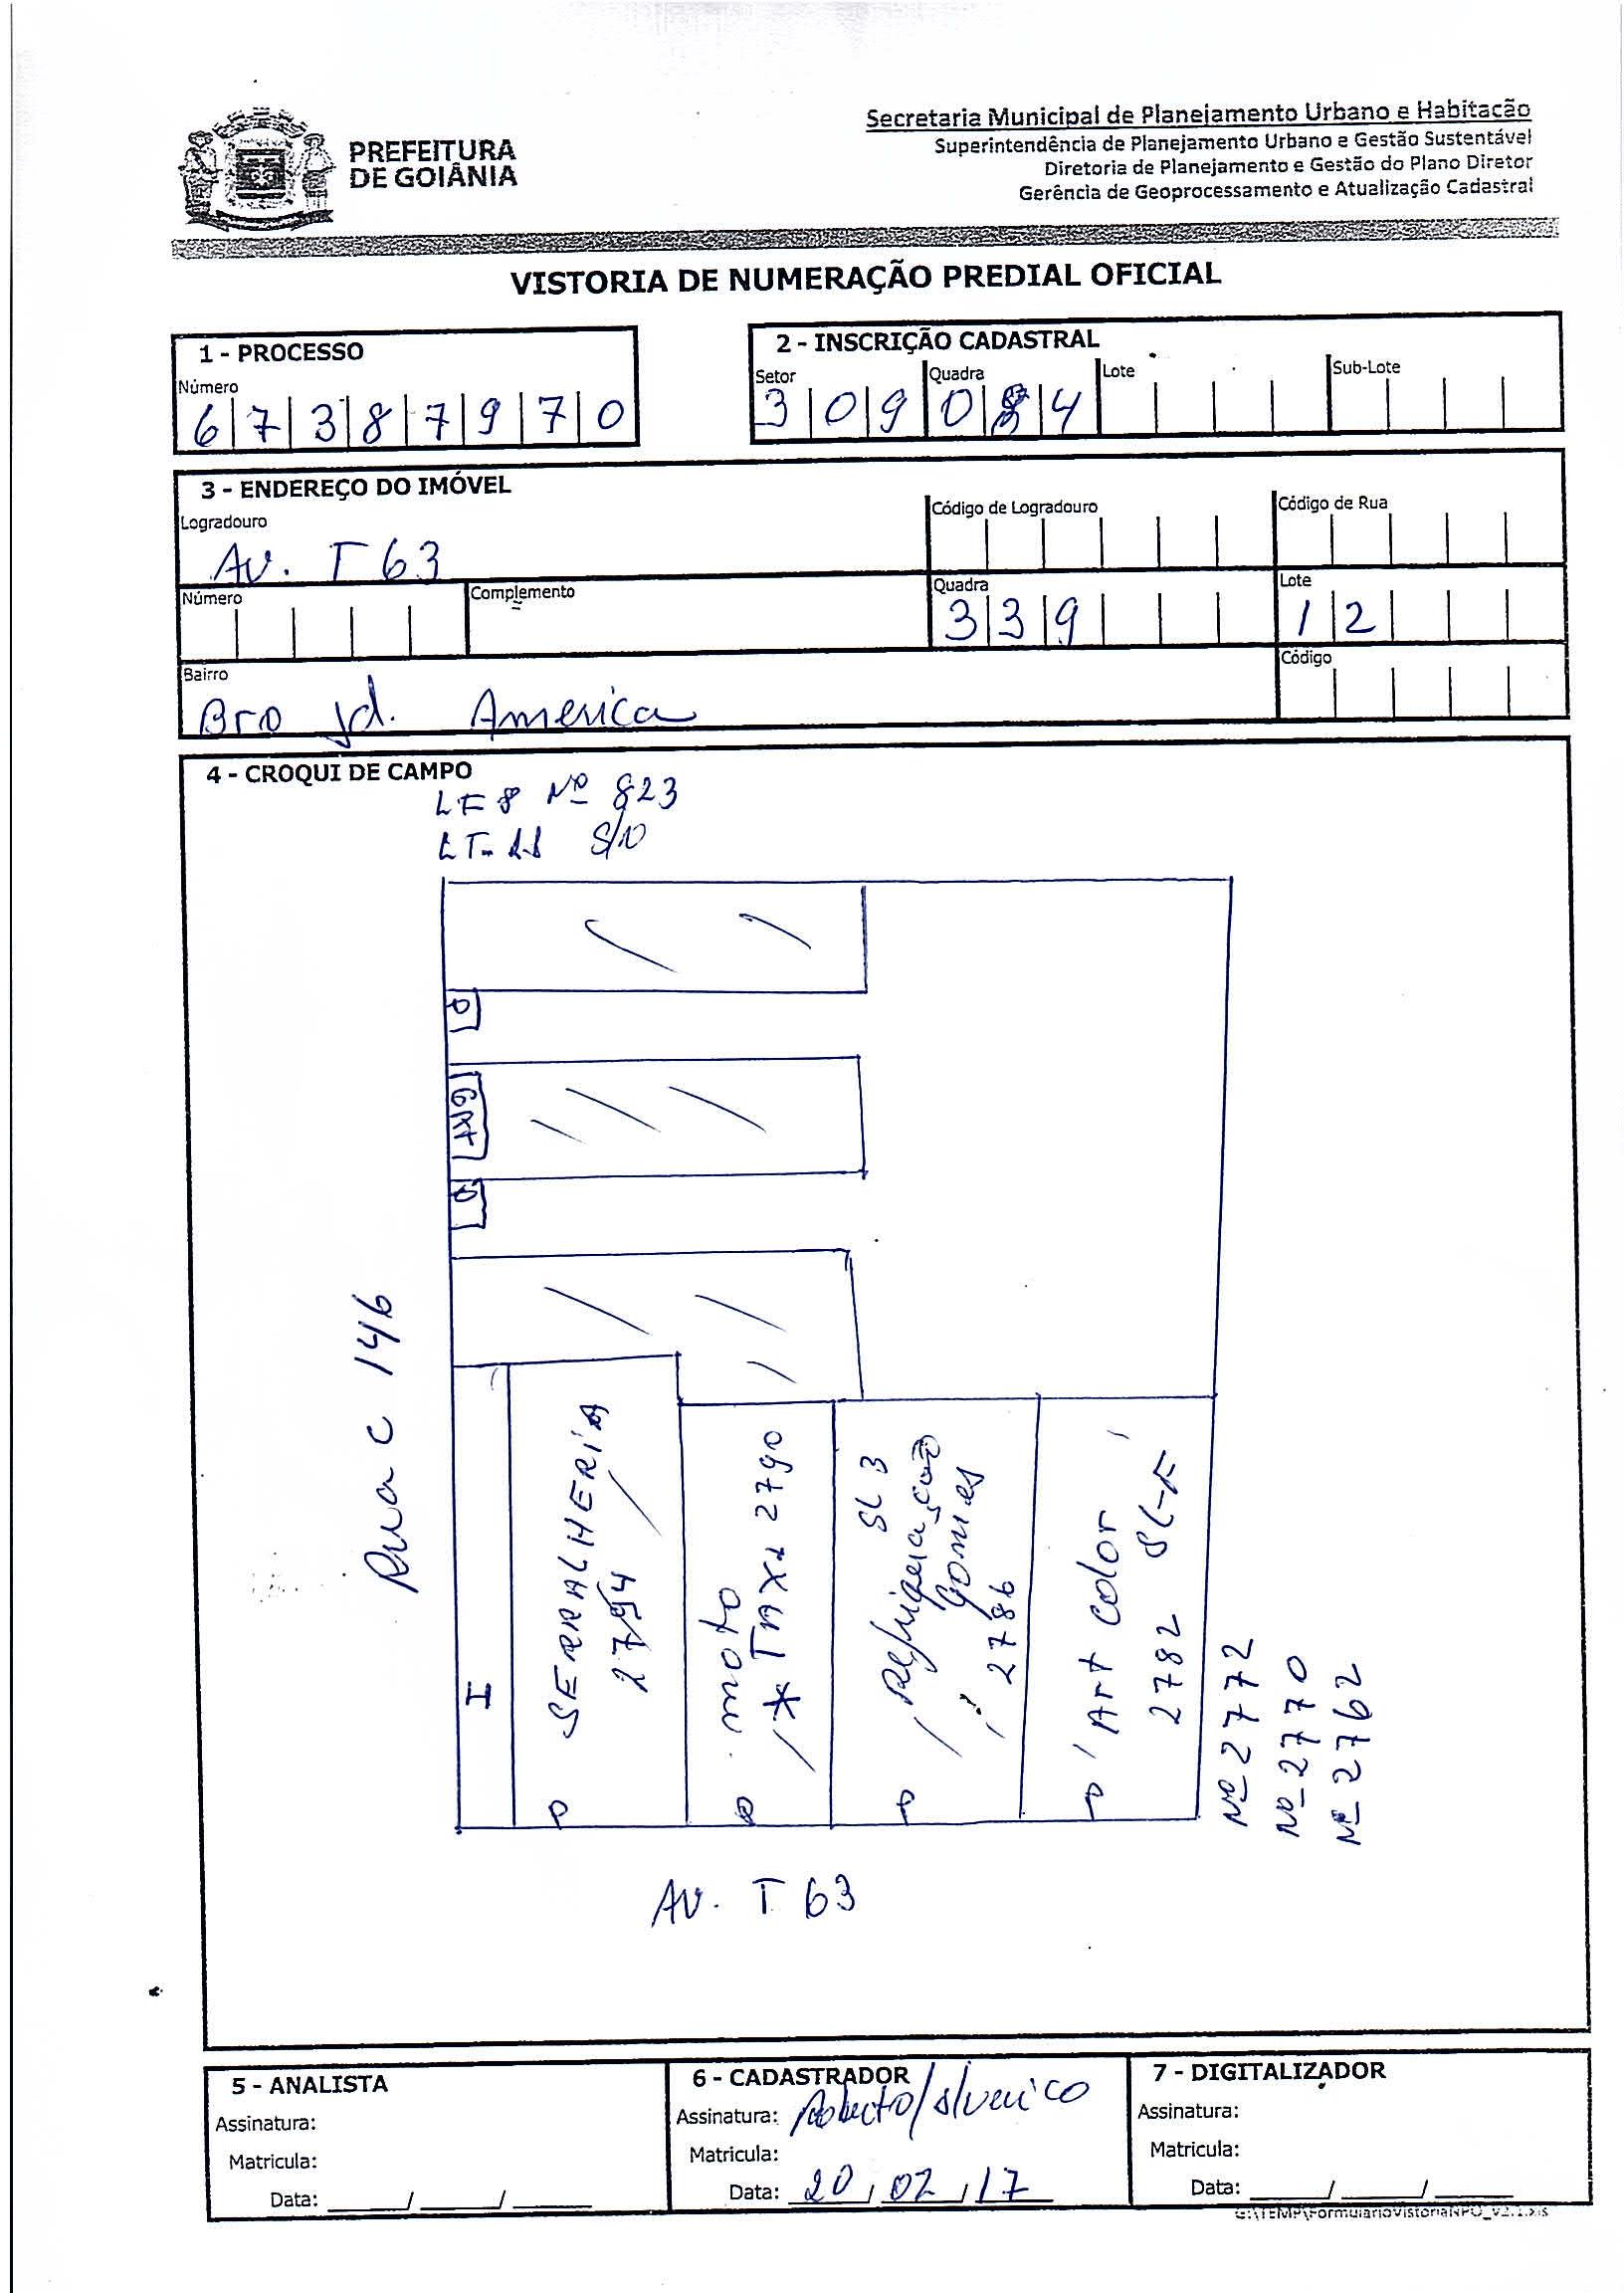 PREFEITURA
DE GOIÂNIA
Secretaria Municipal de Planejamento Urbano e Habitação
Superintendência de Planejamento Urbano e Gestão Sustentável
Diretoria de Planejamento e Gestão do Plano Diretor
Gerência de Geoprocessamento e Atualização Cadastral
VISTORIA DE NUMERAÇÃO PREDIAL OFICIAL
1 - PROCESSO
Número
6 7 3 8 7 9 7 0
2 - INSCRIÇÃO CADASTRAL
Setor Quadra Lote Sub-Lote
3 0 9 0 4
3 - ENDEREÇO DO IMÓVEL
Logradouro Código de Logradouro Código de Rua
Av. T 63
Número Complemento Quadra Lote
3 3 9 1 2
Bairro Código
Bro Jd. America
4 - CROQUI DE CAMPO
Nº 823
LT-
Rua C 146
SERRALHERIA
2794
moto
* TAXI 2790
SL 3
Refrigeração
Gomes
2786
Art color
2782
Nº 2772
Nº 2770
Nº 2762
AV. T 63
5 - ANALISTA
Assinatura:
Matricula:
Data: / /
6 - CADASTRADOR
Assinatura: Roberto/
Matricula:
Data: 20 / 02 / 17
7 - DIGITALIZADOR
Assinatura:
Matricula:
Data: / /
G:\TEMP\FormularioVistoriaNPO_v2.1.xls